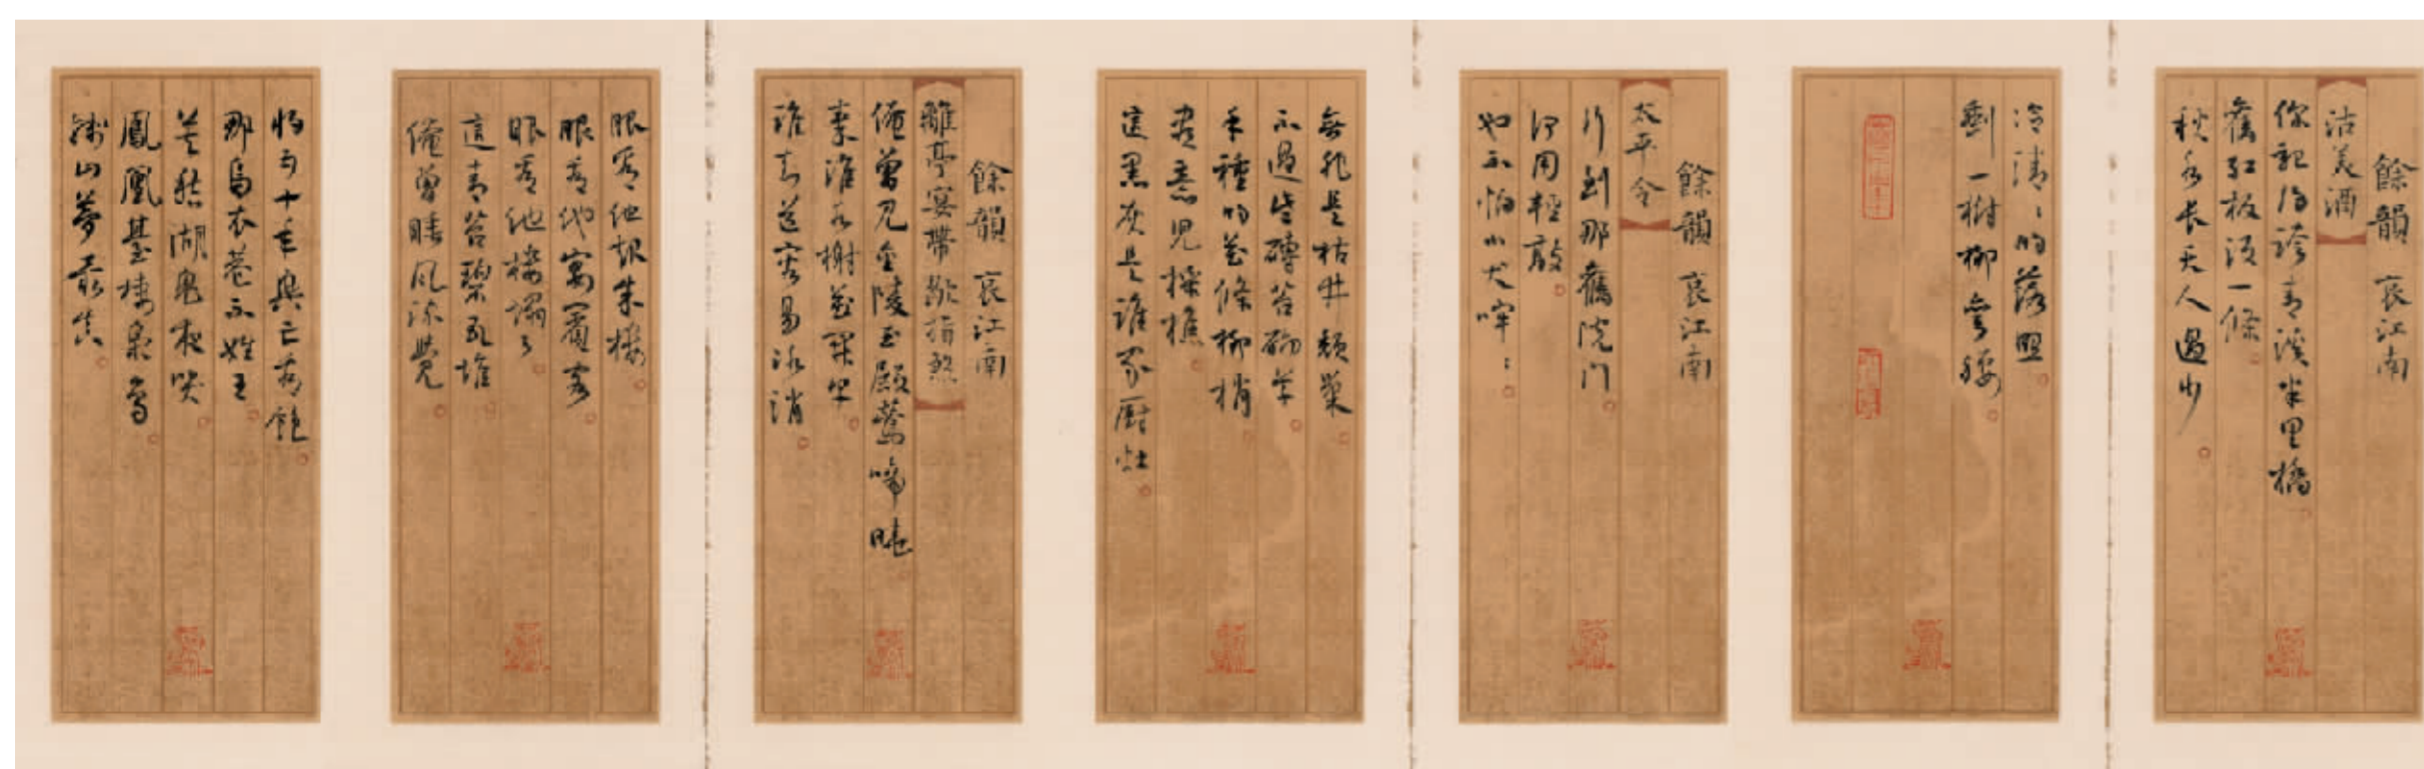 餘韻 哀江南
沽美酒
你記得跨青溪半里橋
舊紅板沒一條
秋水長天人過少
冷清：的落照
剩一樹柳彎腰
餘韻 哀江南
太平令
行到那舊院门
何用輕敲
也不怕小犬哰：
無非是枯井頹巢
不過些磚苔砌草
手種的花條柳梢
盡意兒採樵
這黑灰是誰家厨灶
餘韻 哀江南
離亭宴帶歇指煞
俺曾見金陵玉殿鶯啼曉
秦淮水榭花開早
誰知道容易冰消
眼看他起朱樓
眼看他宴賓客
眼看他樓塌了
這青苔碧瓦堆
俺曾睡風流覺
將五十年興亡看飽
那烏衣巷不姓王
莫愁湖鬼夜哭
鳳凰臺棲梟鳥
殘山夢最真